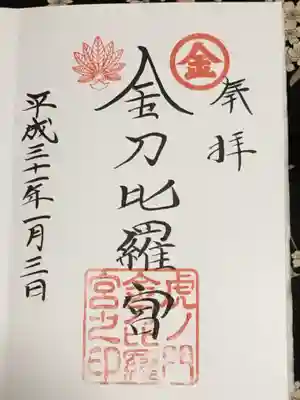 奉拝
金
金刀比羅宮
虎ノ門
金刀比羅
宮之印
平成三十一年一月三日